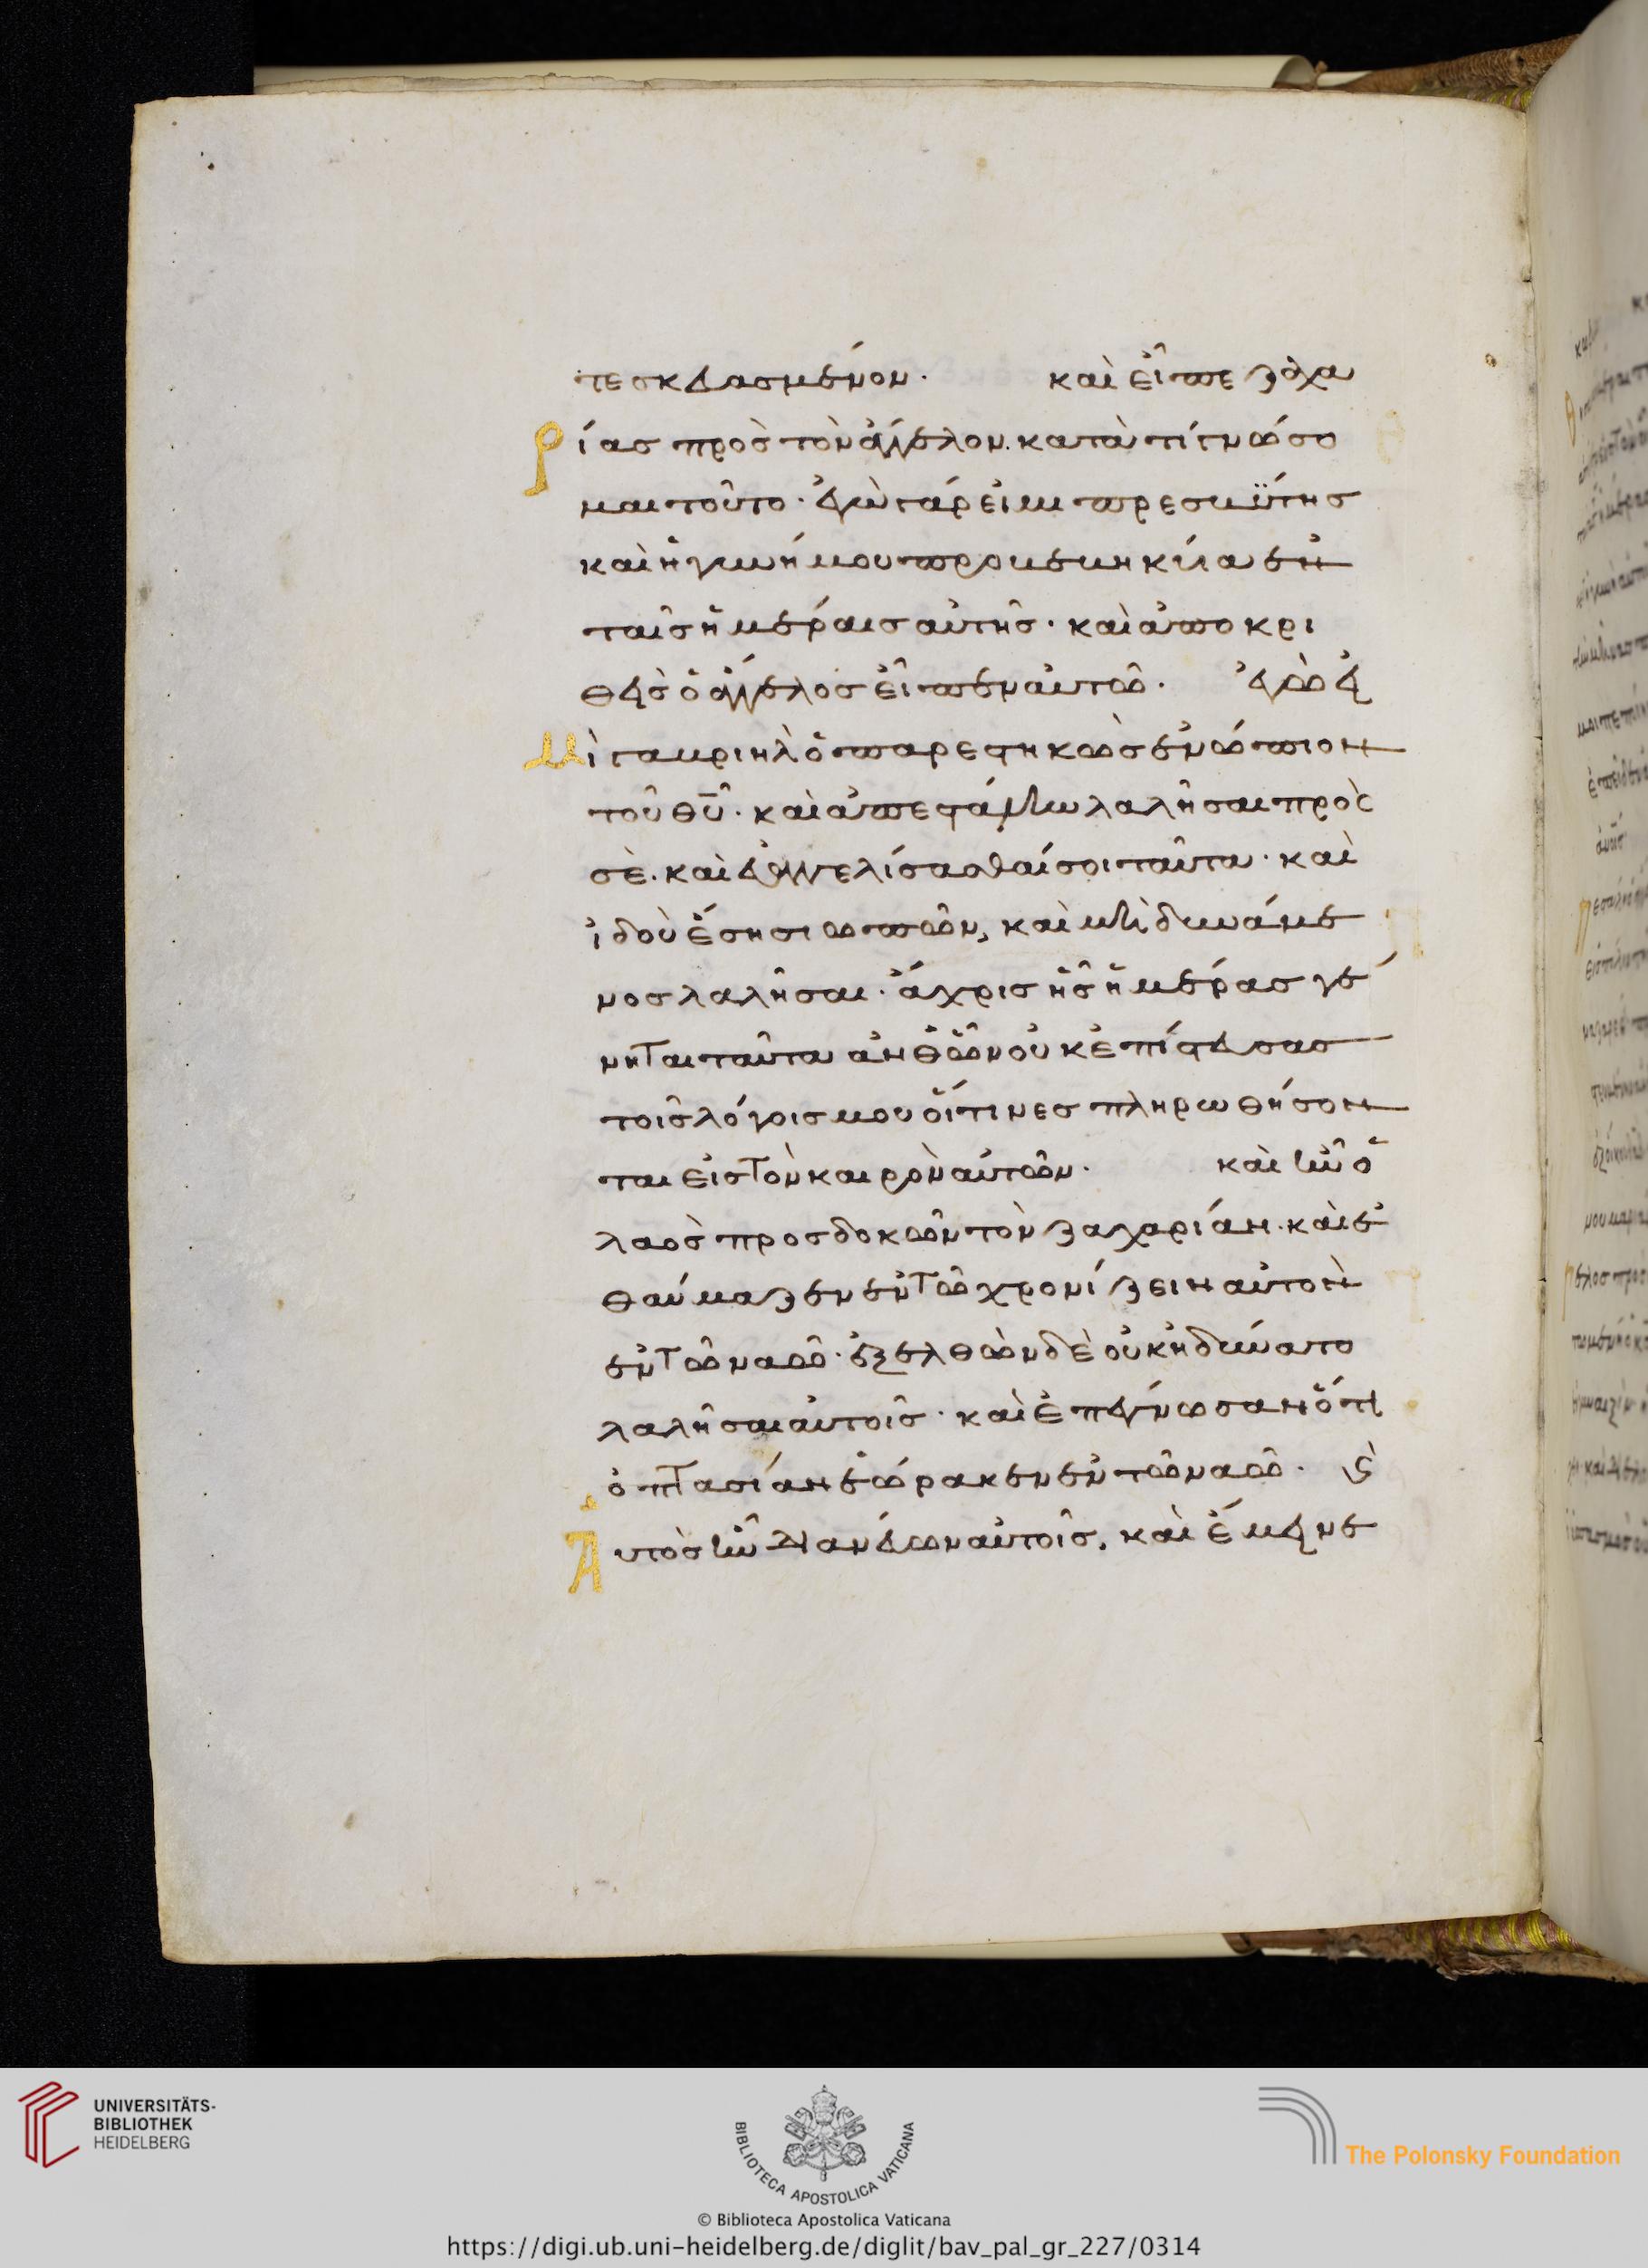 τεσκευασμένον. καὶ εἶπε ζαχα
ρίας πρὸς τὸν ἄγγελον. κατὰ τί γνώσο
μαι τοῦτο· ἐγὼ γάρ εἰμι πρεσβύτης
καὶ ἡ γυνή μου προβεβηκυῖα ἐν
ταῖς ἡμέραις αὐτῆς· καὶ ἀποκρι
θεὶς ὁ ἄγγελος εἶπεν αὐτῶ· ἐγώ εἰ
μὶ γαβριὴλ ὁ παρεστηκὼς ἐνώπιον
τοῦ θῦ· καὶ ἀπεστάλην λαλῆσαι πρὸς
σὲ. καὶ εὐαγγελίσασθαί σοι ταῦτα· καὶ
ἰδοὺ ἔση σιωπῶν, καὶ μὴ δυνάμε
νος λαλῆσαι· ἄχρις ἧς ἡμέρας γέ
νηται ταῦτα ἀνθῶν οὐκ ἐπίστευσας
τοῖς λόγοις μου οἵτινες πληρωθήσον
ται εἰς τὸν καιρὸν αὐτῶν· καὶ ἦν ὁ
λαὸς προσδοκῶν τὸν ζαχαρίαν. καὶ ἐ
θαύμαζεν ἐν τῶ χρονίζειν αὐτὸν
ἐν τῶ ναῶ· ἐξελθὼν δὲ οὐκ ἠδύνατο
λαλῆσαι αὐτοῖς· καὶ ἐπέγνωσαν ὅτι
ὀπτασίαν ἑώρακεν ἐν τῶ ναῶ· ϗ
Αὐτὸς ἦν διανεύων αὐτοῖς, καὶ ἔμεινε
UNIVERSITÄTS-
BIBLIOTHEK
HEIDELBERG
BIBLIOTECA APOSTOLICA VATICANA
The Polonsky Foundation
© Biblioteca Apostolica Vaticana
https://digi.ub.uni-heidelberg.de/diglit/bav_pal_gr_227/0314